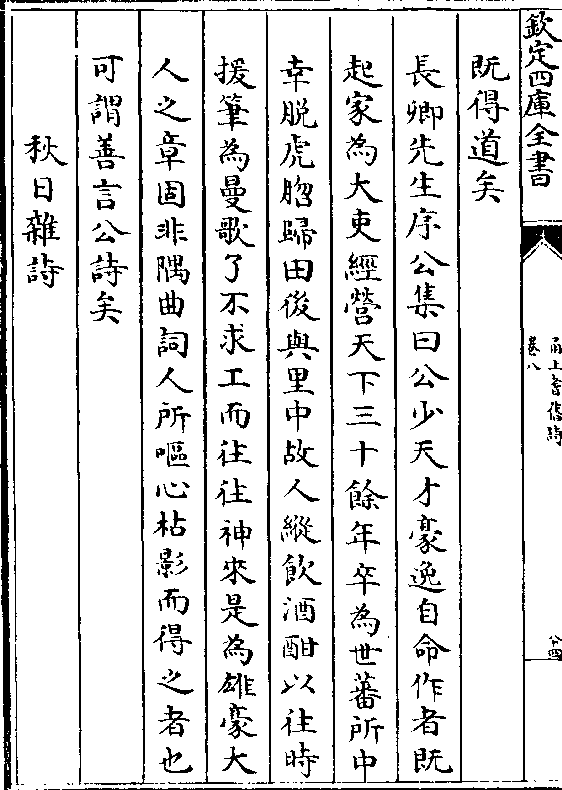 欽定四庫全書
甬上耆舊詩
卷八
八四
既得道矣
長卿先生序公集曰公少天才豪逸自命作者既
起家為大吏經營天下三十餘年卒為世蕃所中
幸脱虎𦙄歸田後與里中故人縱飲酒酣以往時
援筆為曼歌了不求工而往往神來是為雄豪大
人之章固非隅曲詞人所嘔心枯影而得之者也
可謂善言公詩矣
秋日雜詩